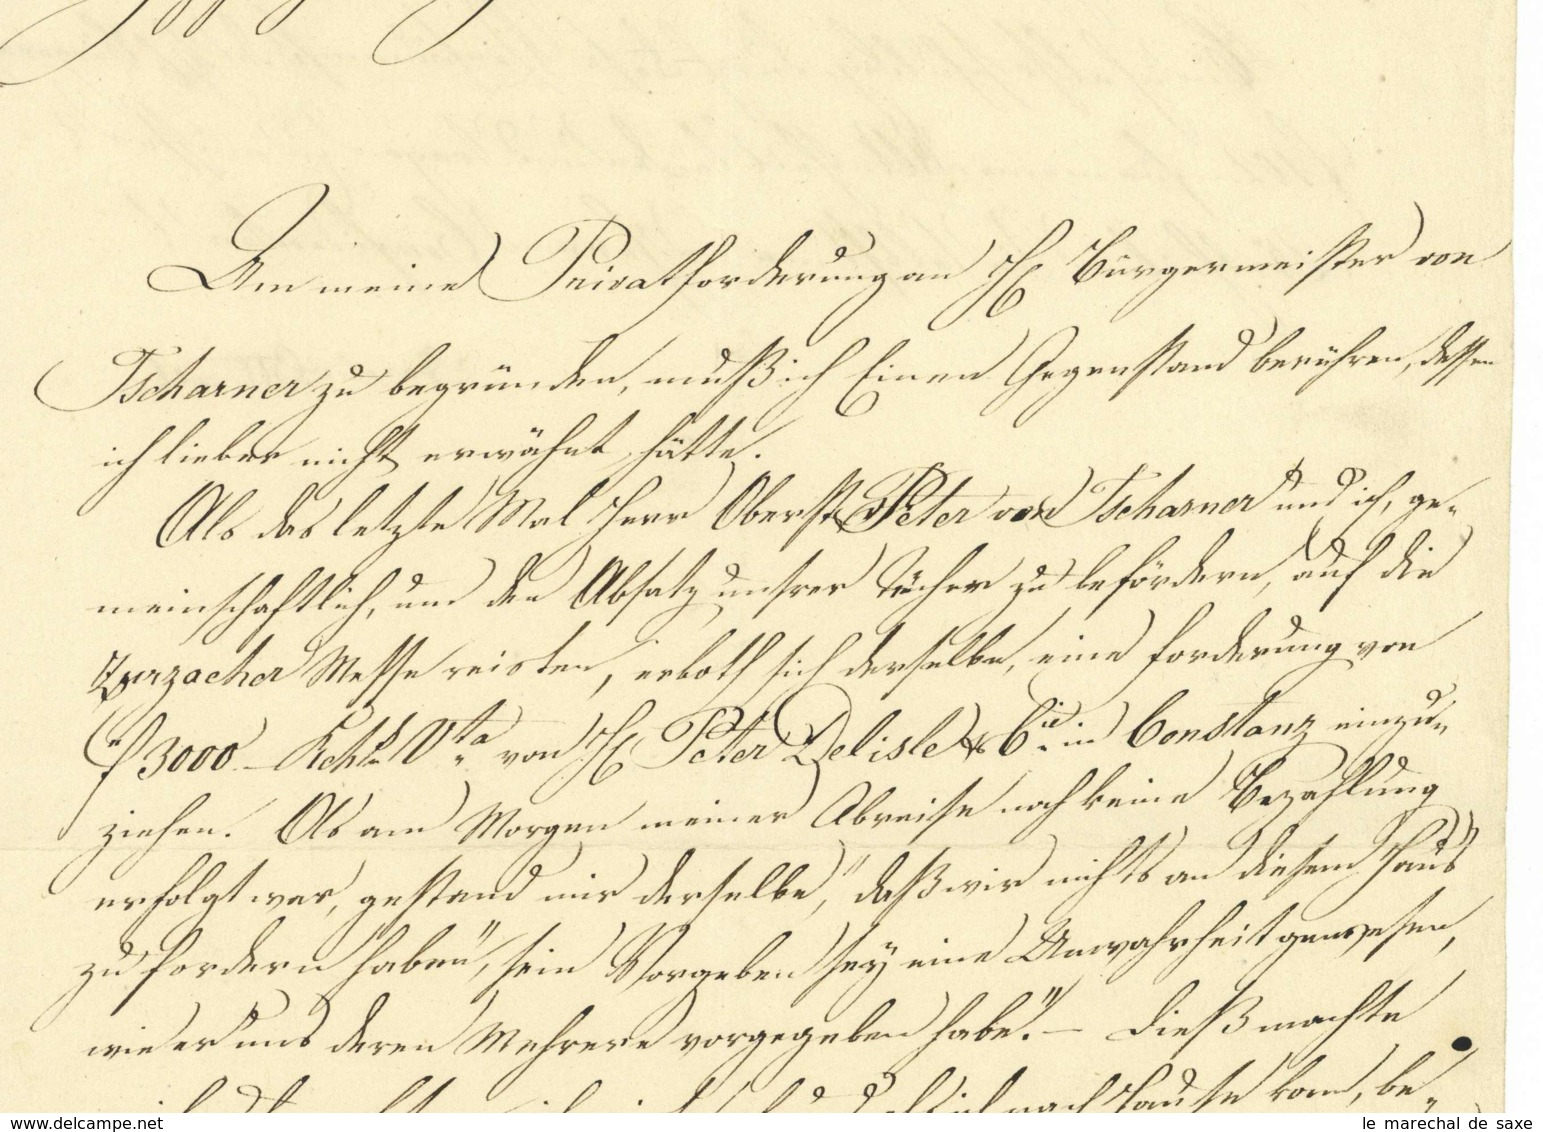 Um meine Privatforderung an H. Bürgermeister von
Tscharner zu begründen, muß ich Einen Gegenstand berühren, dessen
ich lieber nicht erwähnt hätte.
Als das letzte Mal Herr Oberst Peter von Tscharner und ich, ge-
meinschaftlich, um den Absatz unsrer Tücher zu befördern, auf die
Zurzacher Messe reisten, erboth sich derselbe, eine Forderung von
f 3000 von H. Peter Delisle & Cie in Constanz einzu-
ziehen. Als am Morgen meiner Abreise noch keine Bezahlung
erfolgt war, gestand mir derselbe, "daß wir nichts an diesem Haus
zu fordern haben", sein Vorgeben sey eine Unwahrheit gewesen,
wie er uns deren Mehrere vorgegeben habe." — Dieß machte
ich nach Hause kam, be-
www.delcampe.net
le marechal de saxe